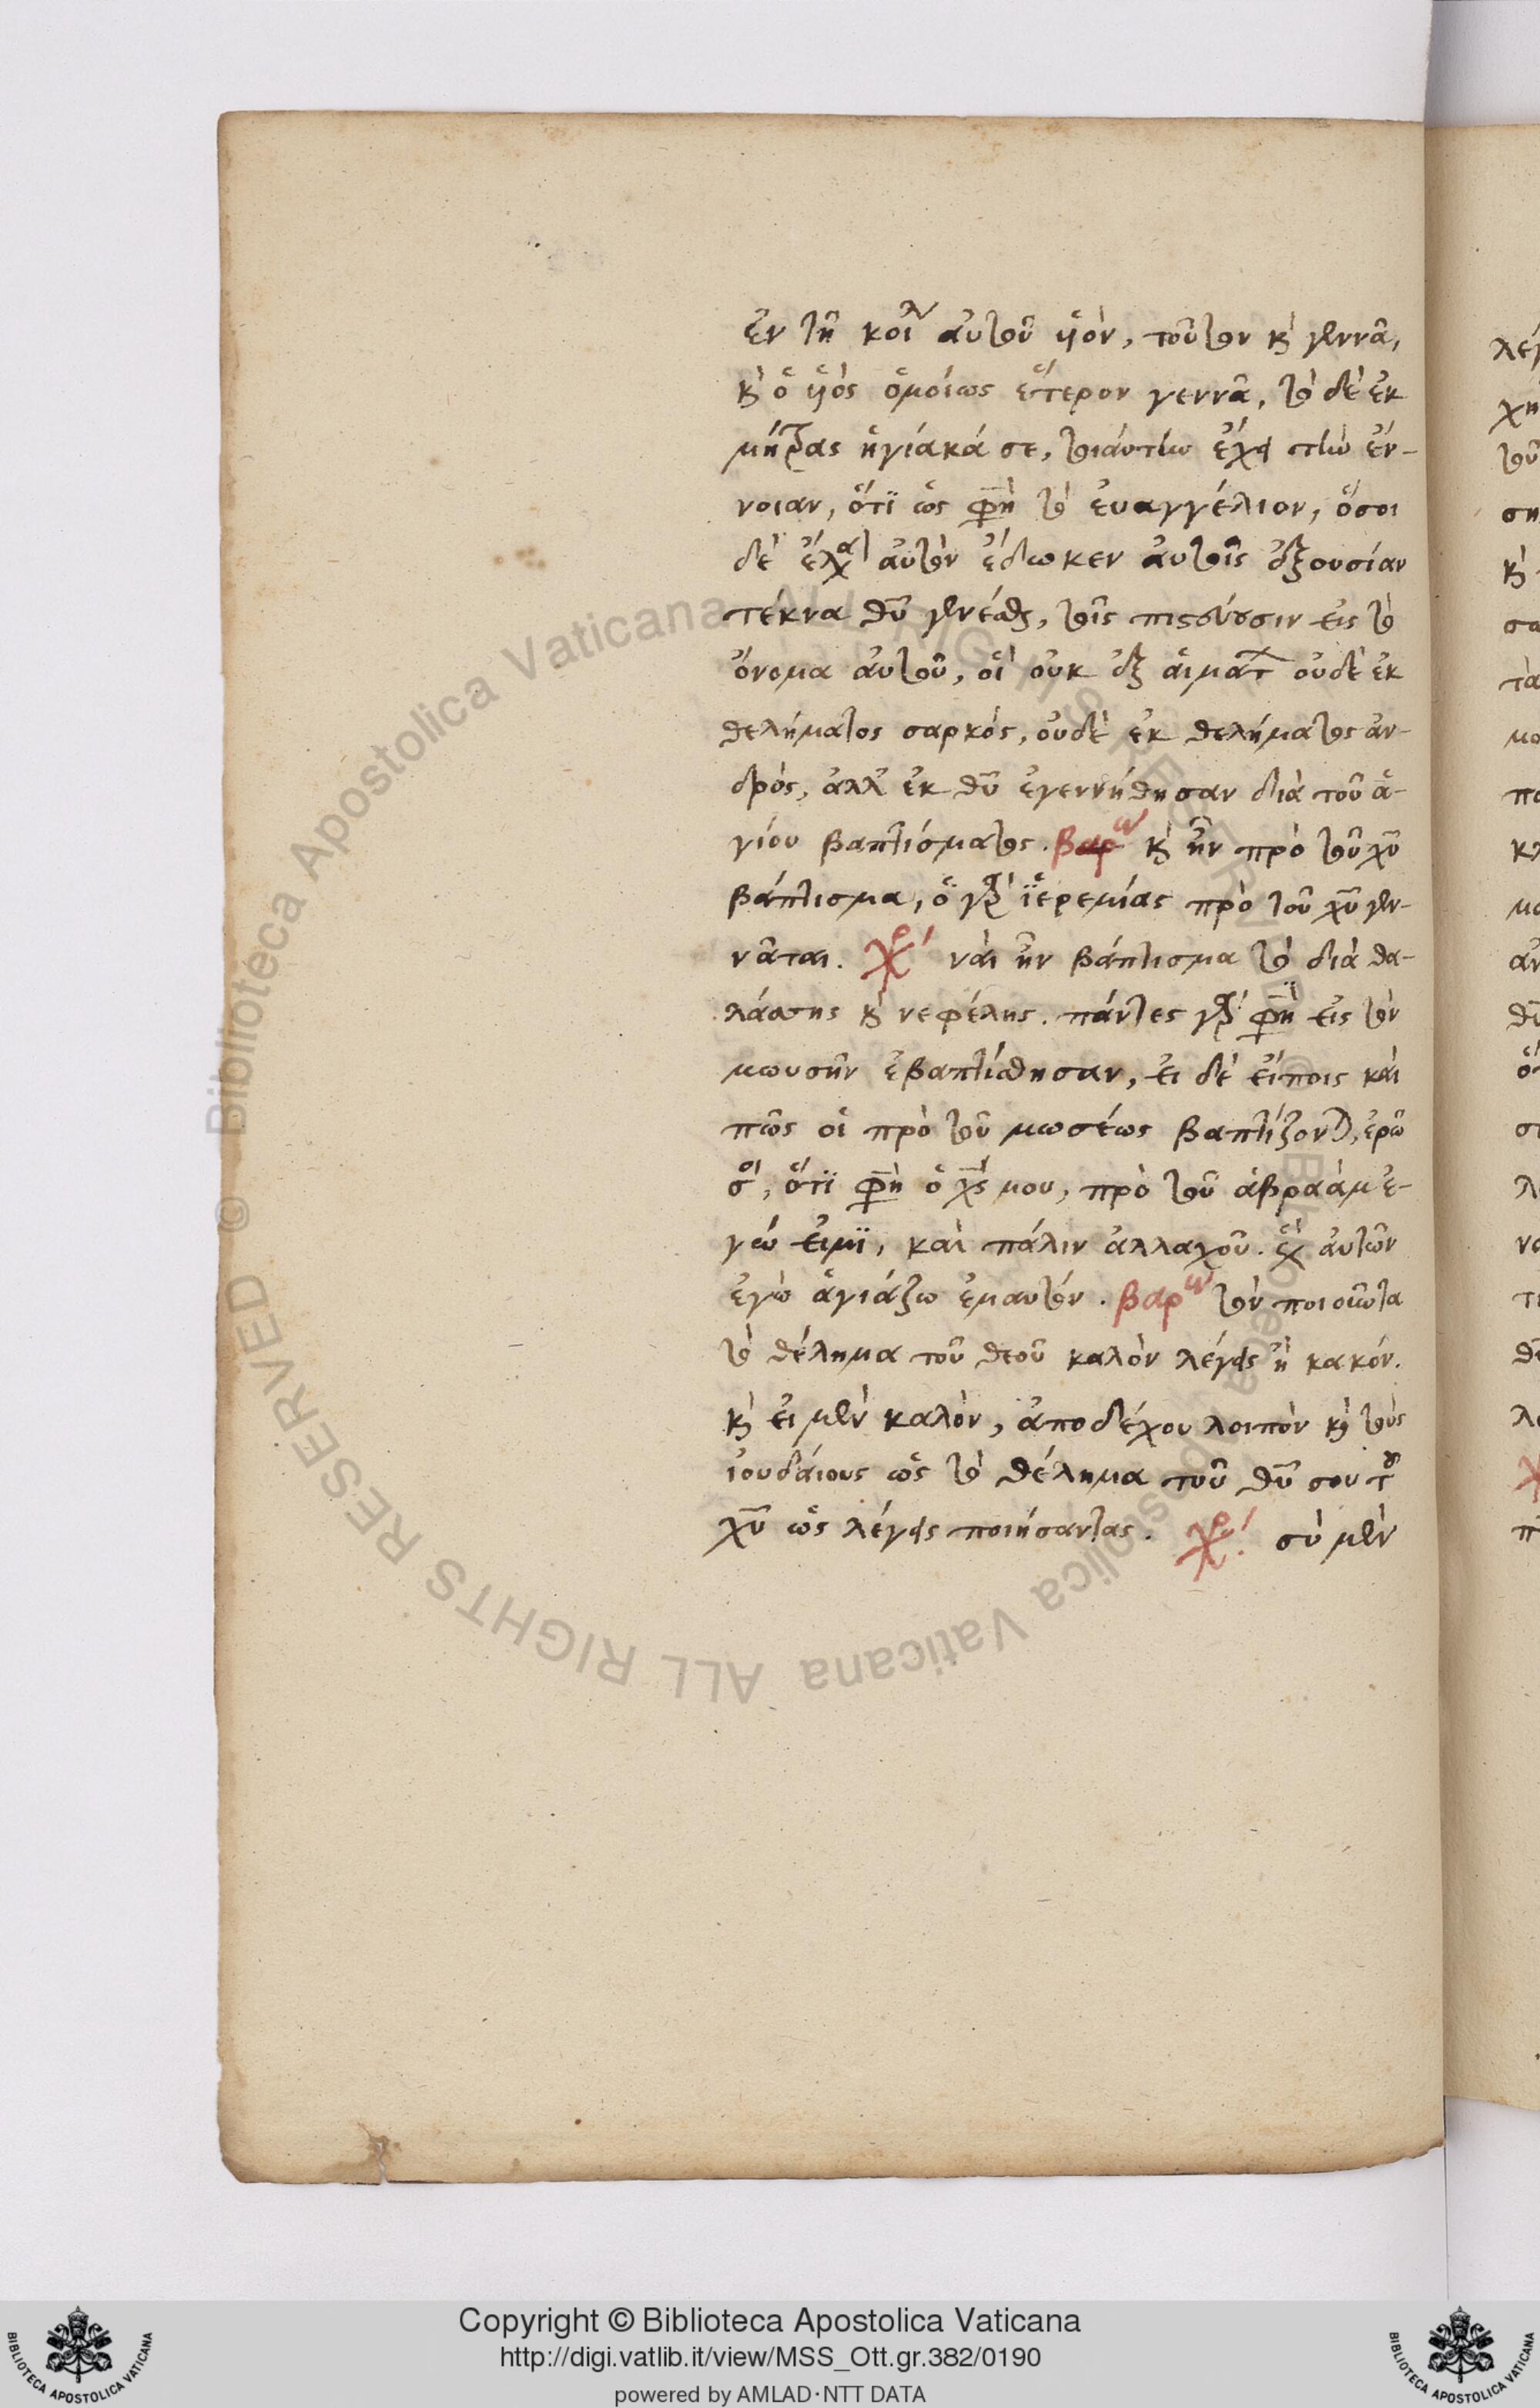 ἐν τῆ κοιλ αὐτοῦ υἱὸν, τοῦτον κ γεννᾶ,
κ ὁ υἱὸς ὁμοίως ἕτερον γεννᾶ, τὸ δὲ ἐκ
μήτρας ἡγίακά σε, τοιαύτην ἔχει τὴν ἔν-
νοιαν, ὅτϊ ὡς φη τὸ ἐυαγγέλιον, ὅσοι
δὲ ἔλα αὐτὸν ἔδωκεν ἀυτοῖς ἐξουσίαν
τέκνα θῦ γενέσθαι, τοῖς πιστεύουσιν εἰς τὸ
ὄνομα αὐτοῦ, οἳ οὐκ ἐξ αἱμάτ οὐδὲ ἐκ
θελήματος σαρκός, οὐδὲ ἐκ θελήματος ἀν-
δρός, ἀλλ' ἐκ θῦ ἐγεννήθησαν διὰ τοῦ ἁ-
γίου βαπτίσματος. βαρω κ ἦν πρὸ τοῦ χῦ
βάπτισμα, ὁ γὰρ ϊερεμίας πρὸ τοῦ χῦ γεν-
νᾶται. χρ ναὶ ἦν βάπτισμα τὸ διὰ θα-
λάσσης κ νεφέλης. πάντες γὰρ φη εἰς τὸν
μωυσῆν ἐβαπτίσθησαν, ει δὲ εἴποις καὶ
πῶς οἱ πρὸ τοῦ μωσέως βαπτίζονται, ἐρῶ
σοι, ὅτϊ φη ὁ χς μου, πρὸ τοῦ ἀβραὰμ ἐ-
γώ εἰμϊ, καὶ πάλιν ἀλλαχοῦ. αὐτῶν
ἐγὼ ἁγιάζω ἐμαυτόν. βαρω τὸν ποιοῦντα
τὸ θέλημα τοῦ θεοῦ καλὸν λέγεις ἢ κακόν.
κ εἰ μὲν καλὸν, ἀποδέχου λοιπὸν κ τοὺς
ἰουδαίους ὡς τὸ θέλημα τοῦ θῦ σου τοῦ
χῦ ὡς λέγεις ποιήσαντας. χρ σὺ μὲν
Copyright © Biblioteca Apostolica Vaticana
http://digi.vatlib.it/view/MSS_Ott.gr.382/0190
powered by AMLAD·NTT DATA